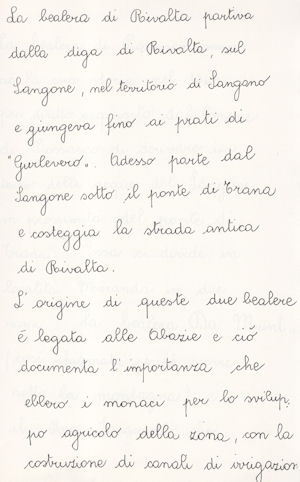 La bealera di Rivalta partiva
dalla diga di Rivalta, sul
Sangone, nel territorio di Sangano
e giungeva fino ai prati di
"Gerlevero". Adesso parte dal
Sangone sotto il ponte di Trana
e costeggia la strada antica
di Rivalta.
L'origine di queste due bealere
é legata alle Abazie e ciò
documenta l'importanza che
ebbero i monaci per lo svilup-
po agricolo della zona, con la
costruzione di canali di irrigazion